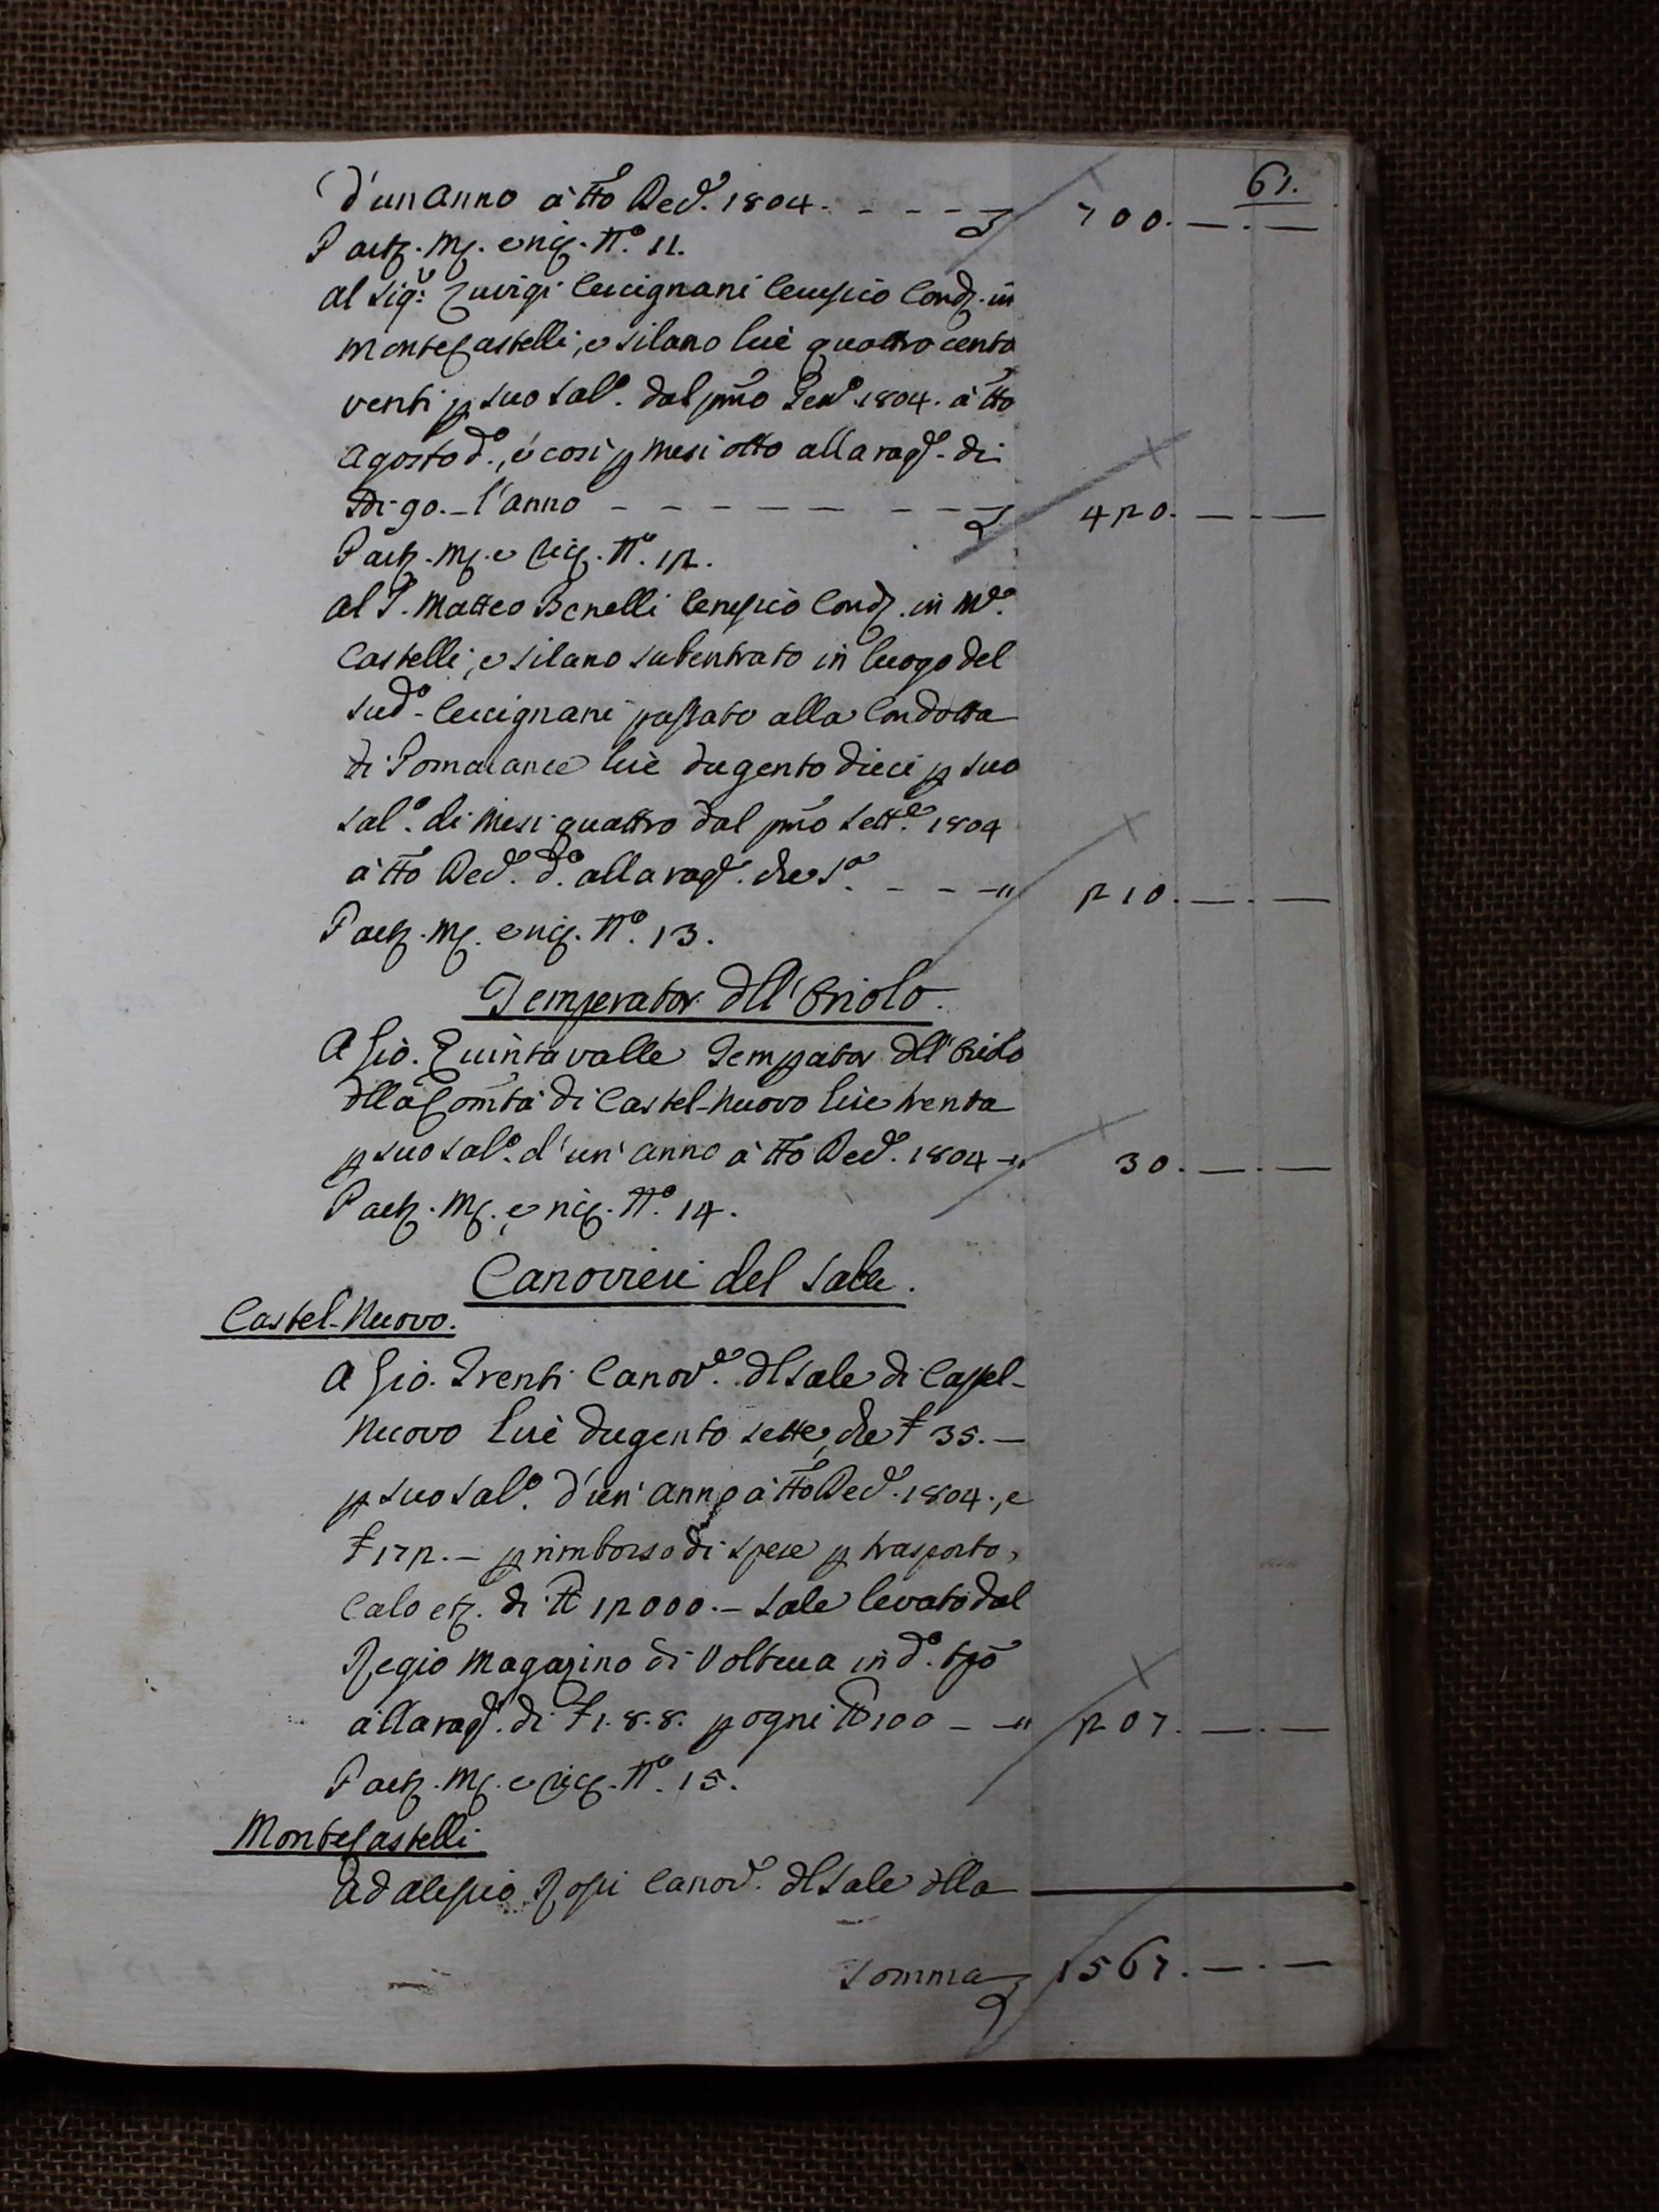 61.
d'un anno à tto Xed.e 1804. - - - - 700. — . —
P actz. Mg. e ricq. N.o 11.
al Sig.r Luvigi Cecignani Cerusico Cond.z in
MonteCastelli, e Silano lire quattrocento
venti p suo Sal.o dal pmo Gen.o 1804. à tto
Agosto d.o, e così p mesi otto alla rag.e di
 90.- l'anno - - - - - - - - 420. — . —
P actz. Mg. e ricq. N.o 12.
al S. Matteo Benelli Cerusico Cond.z in M.e
Castelli, e Silano subentrato in luogo del
Sud.o Cecignani passato alla Condotta
di Pomarance lire dugento dieci p suo
Sal.o di Mesi quattro dal pmo Sett.e 1804
à tto Xed.e d.o alla rag.e che s.a - - - " 210. — . —
P actz. Mg. e ricq. N.o 13.
Temperator dll'Oriolo.
A Gio. Quintavalle Tempator dll'Oriolo
dlla Comtà di Castel-Nuovo lire trenta
p suo Sal.o d'un'anno à tto Xed.e 1804 - " 30. — . —
P actz. Mg. e ricq. N.o 14.
Canovieri del Sale.
Castel-Nuovo.
A Gio. Trenti Canov.e dl Sale di Castel-
Nuovo Lire dugento sette, che £ 35.—
p suo Sal.o d'un'anno à tto Xed.e 1804., e
£ 172.— p rimborso di spese p trasporto,
Calo etz. di ℔ 12000.— Sale levato dal
Regio Magazino di Volterra in d.o tpo
alla rag.e di £ 1. 8. 8. p ogni ℔ 100 - - " 207. — . —
P actz. Mg. e ricq. N.o 15.
MonteCastelli
Ad Alessio Rossi Canov.e dl Sale dlla
Somma 1567. — . —